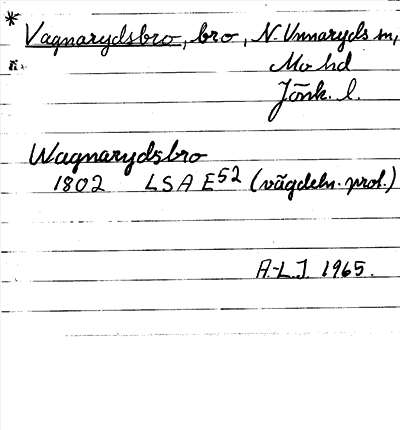 * Vagnarydsbro, bro, N. Unnaryds sn,
Mo hd
Jönk. l.
Wagnarydsbro
1802 LSA E52 (vägdeln. prot.)
A-L.J. 1965.